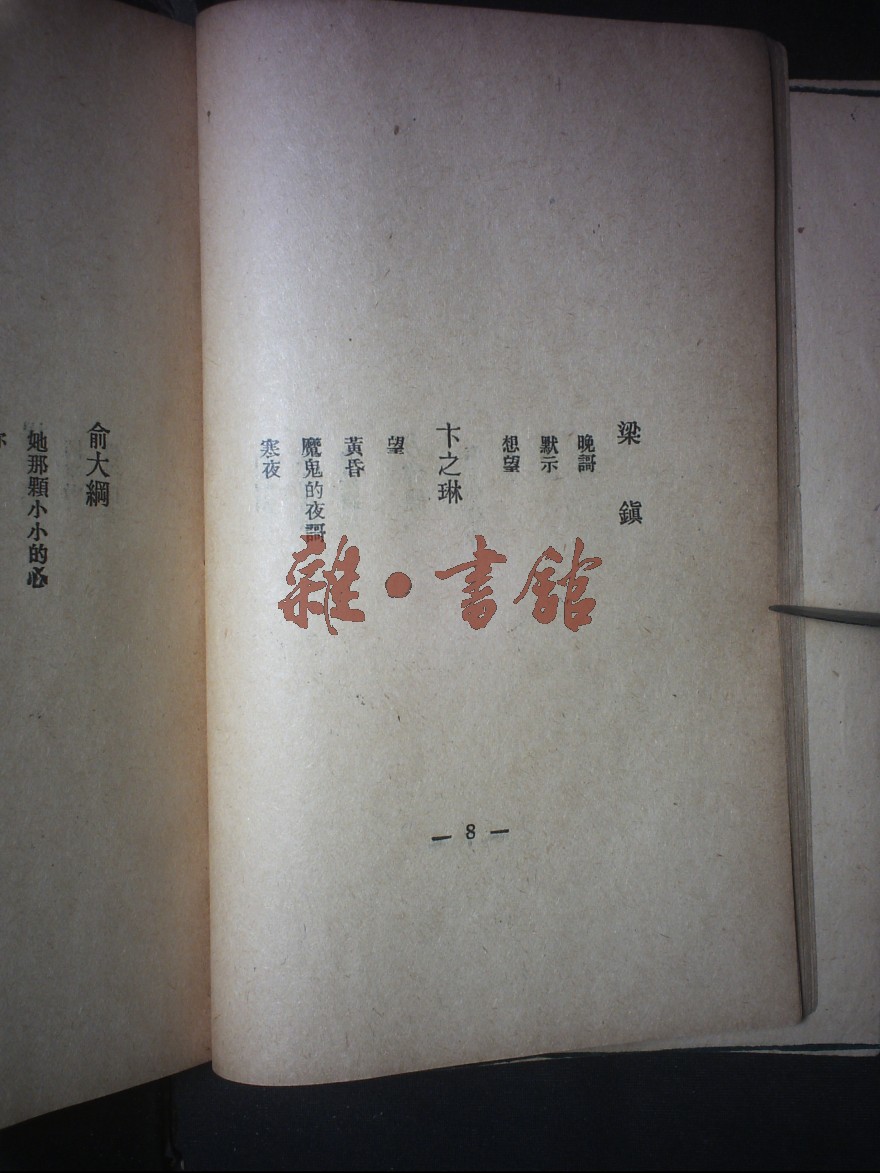 梁鎮
晚謌
默示
想望
卞之琳
望
黃昏
魔鬼的夜謌
寒夜
— 8 —
俞大綱
她那顆小小的心
雜·書館